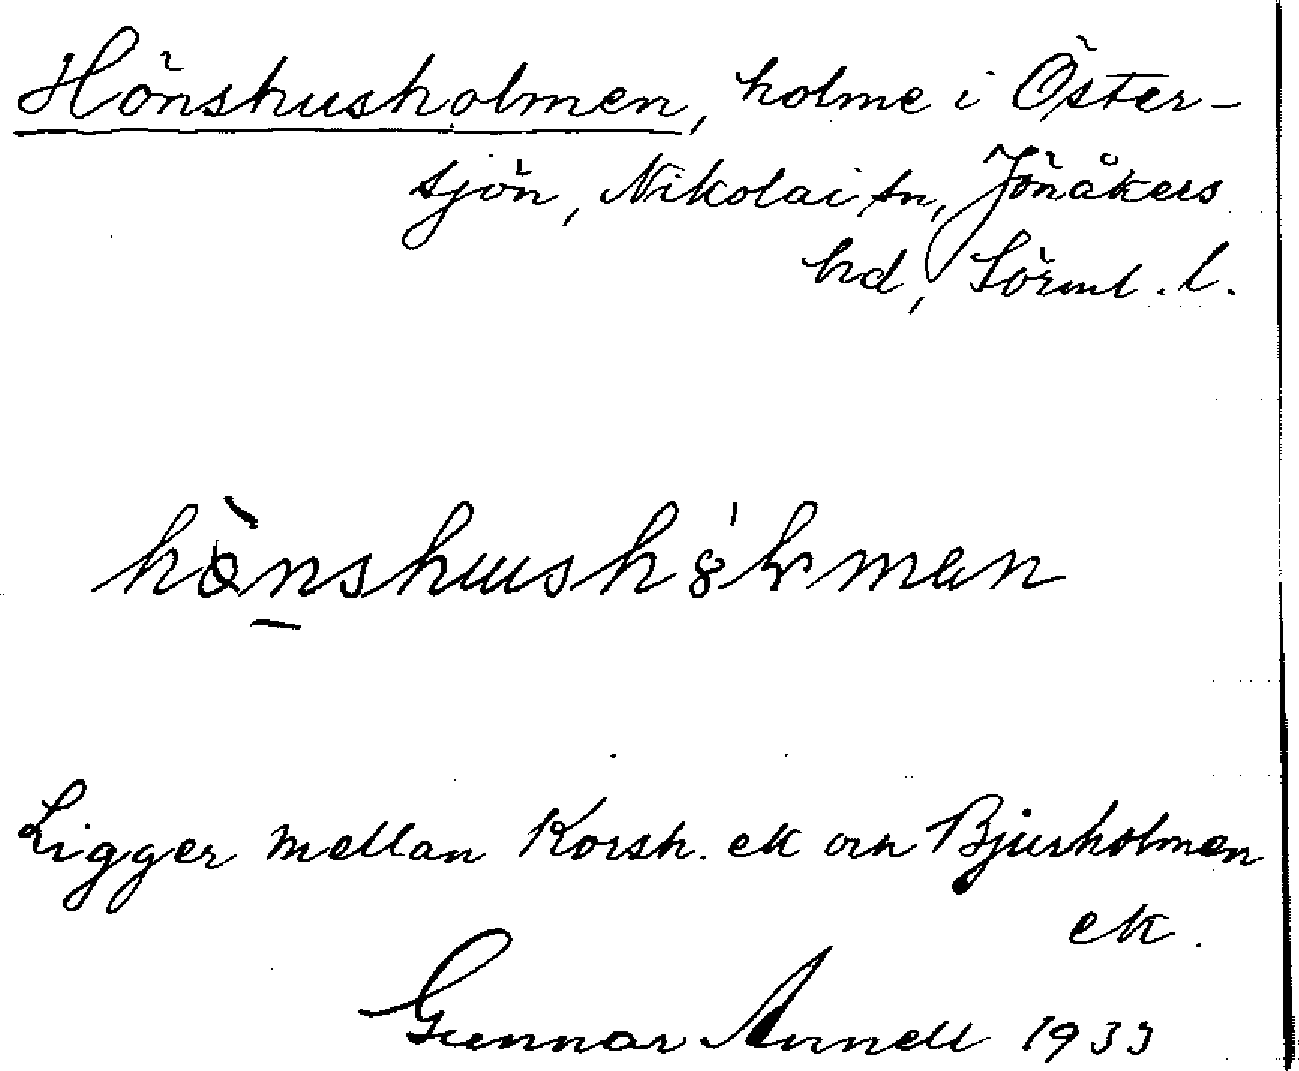 Hönshusholmen, holme i Öster-
sjön, Nikolai sn, Jönåkers
hd, Sörml. l.
Ligger mellan Korsh. ek och Bjurholmen
ek.
Gunnar Annell 1933